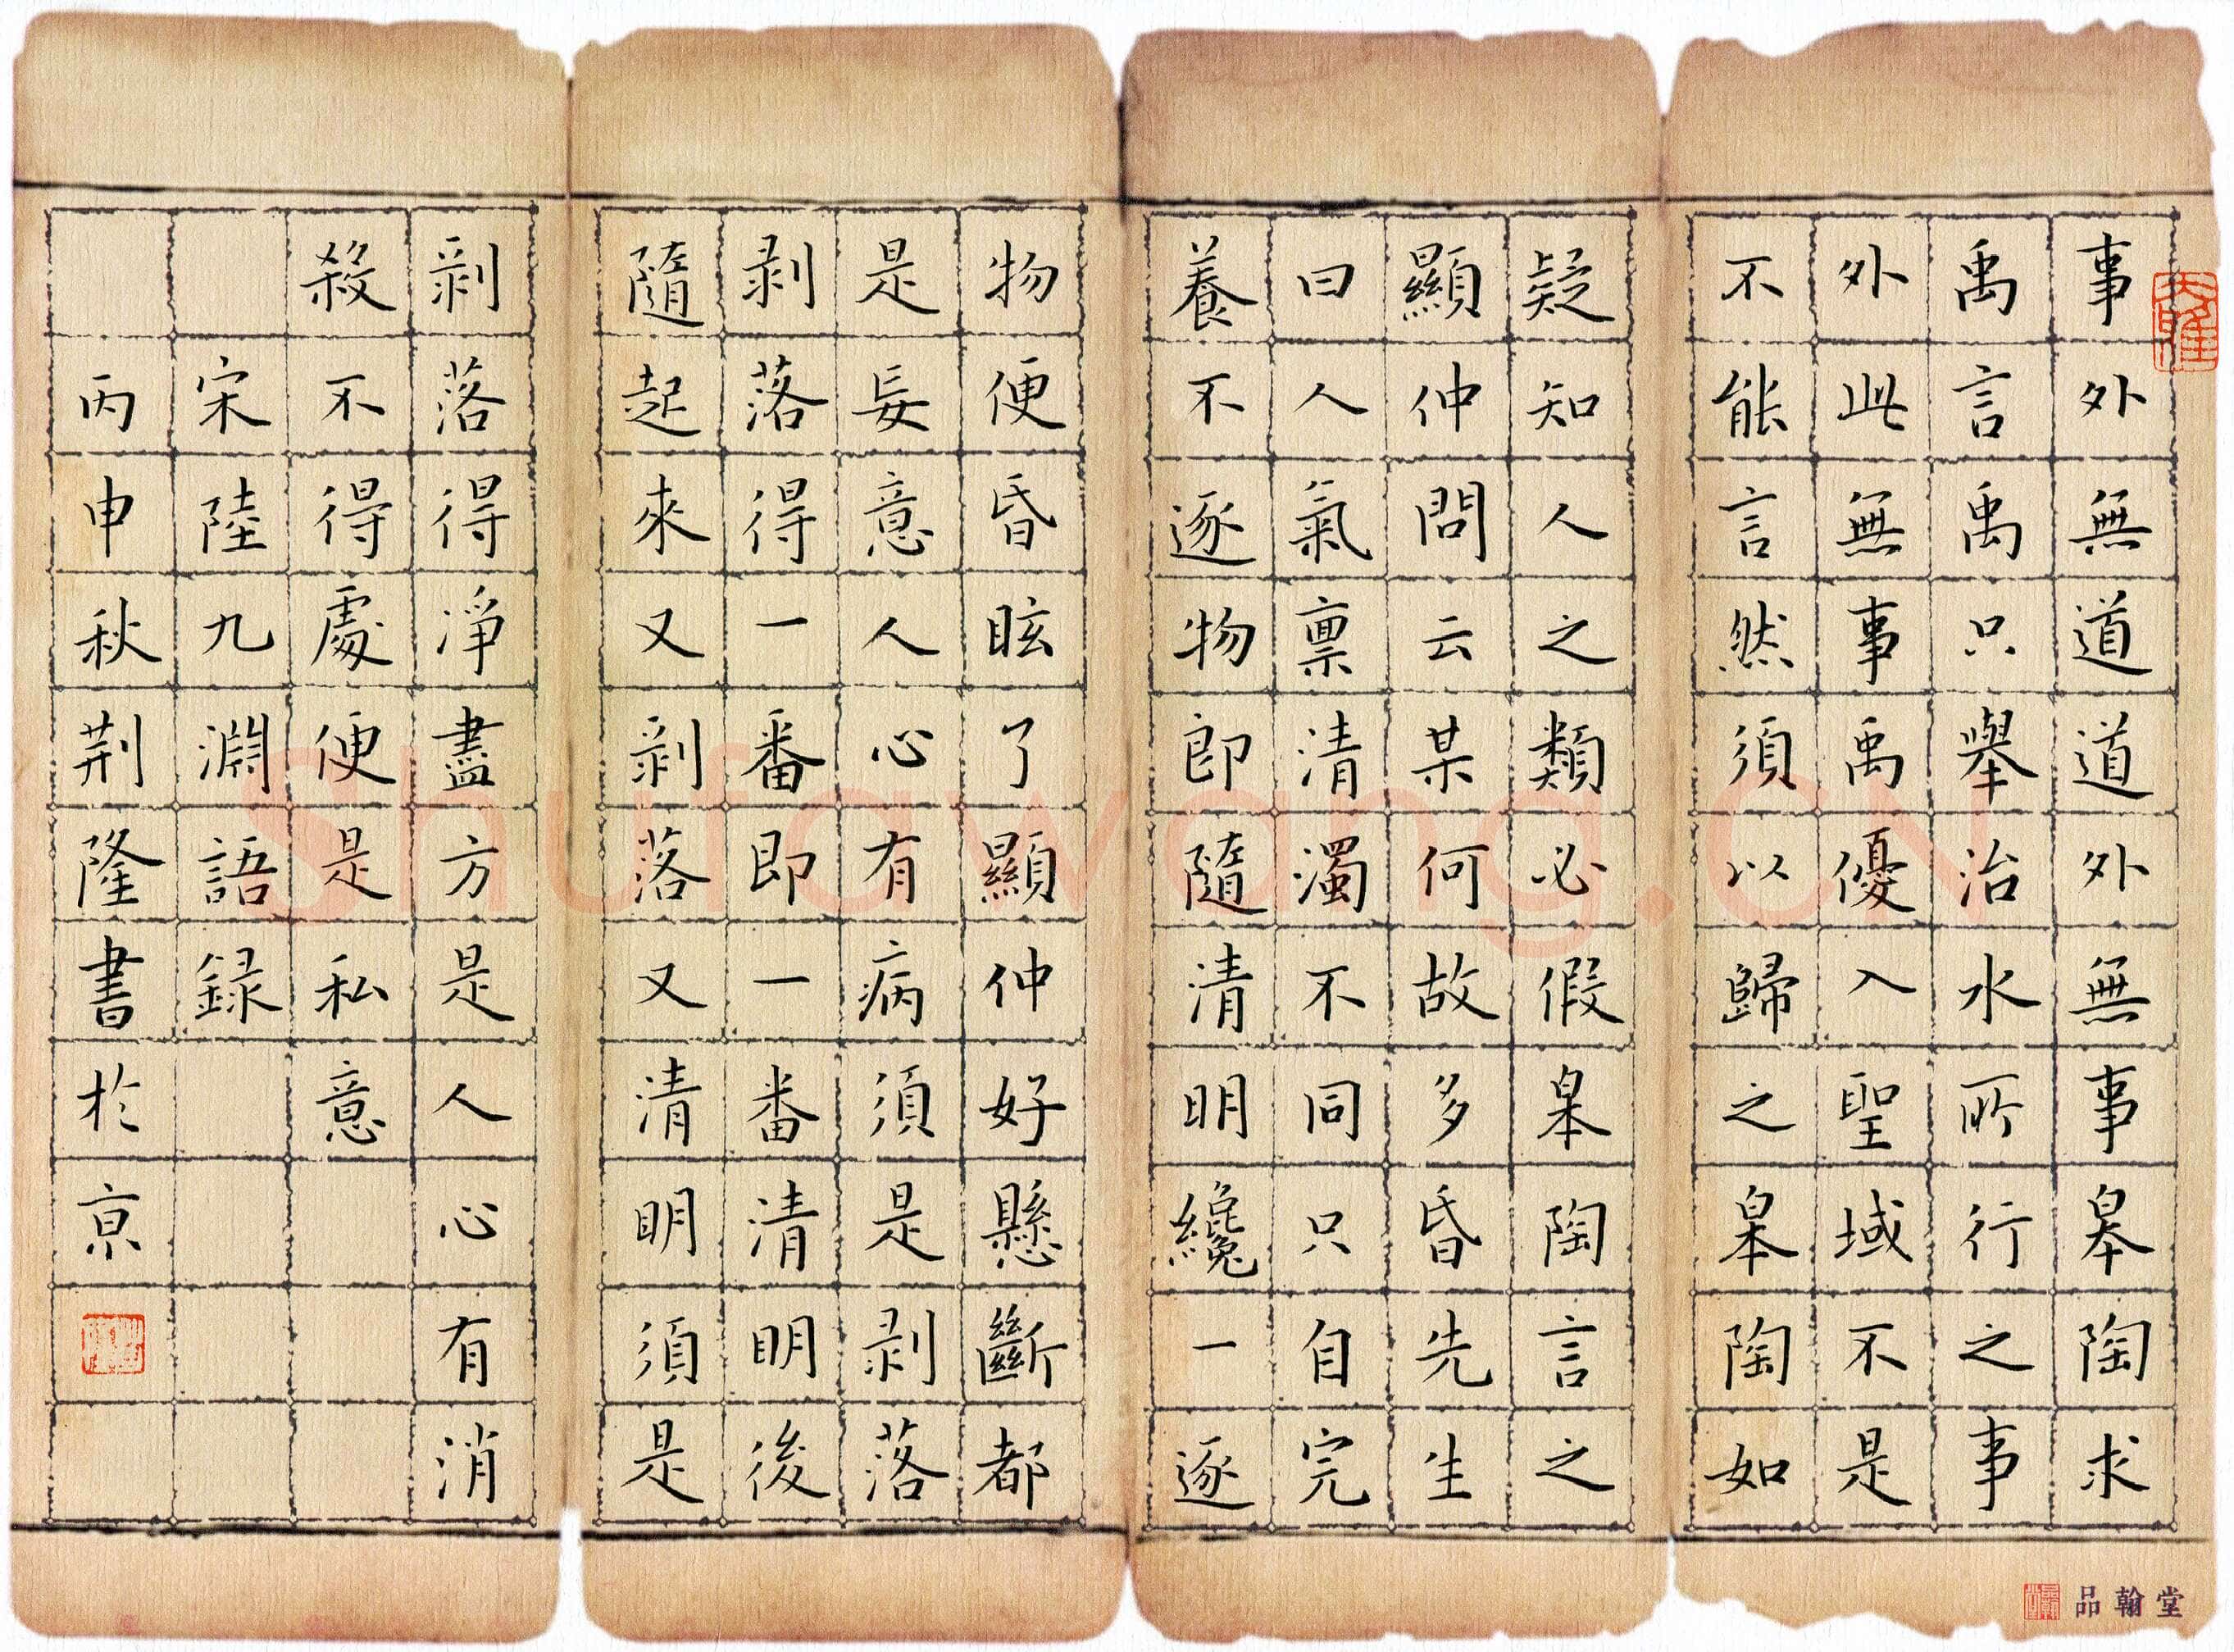 事外無道道外無事皋陶求
禹言禹只舉治水所行之事
外此無事禹優入聖域不是
不能言然須以歸之皋陶如
疑知人之類必假皋陶言之
顯仲問云某何故多昏先生
曰人氣禀清濁不同只自完
養不逐物即隨清明纔一逐
物便昏眩了顯仲好懸斷都
是妄意人心有病須是剥落
剥落得一番即一番清明後
隨起來又剥落又清明須是
剥落得淨盡方是人心有消
殺不得處便是私意
宋陸九淵語録
丙申秋荆隆書於京
品翰堂
Shufawang.CN